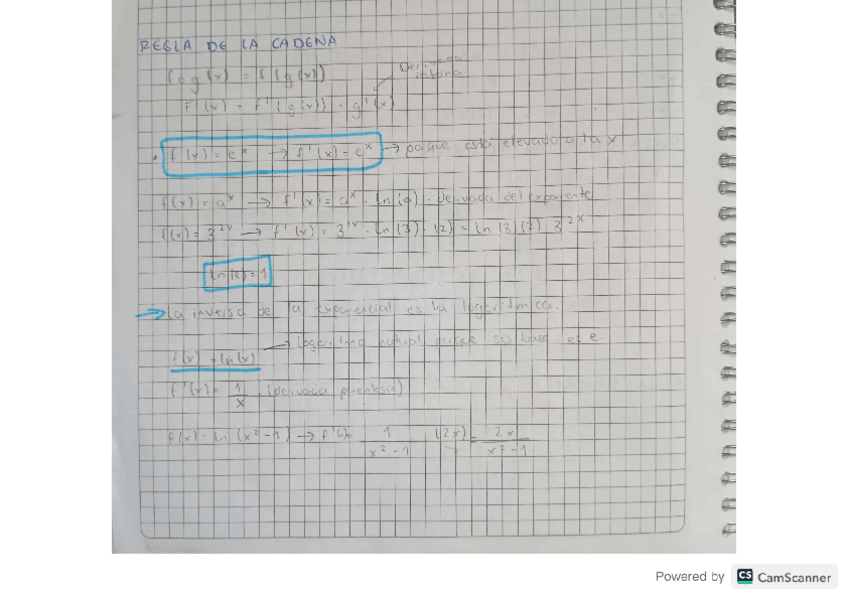 REGLA DE LA CADENA
fog(x) = f(g(x))
Derivada interna
F'(x) = f'(g(x)) · g'(x)
f(x) = e^x → f'(x) = e^x → porque está elevado a la x
f(x) = a^x → f'(x) = a^x · ln(a) · derivada del exponente
f(x) = 3^2x → f'(x) = 3^2x · ln(3) · (2) = ln(3)(2) 3^2x
ln(e) = 1
→ La inversa de la exponencial es la logarítmica.
→ logaritmo natural porque su base es e.
f(x) = ln(x)
f'(x) = 1/x · (derivada paréntesis)
f(x) = ln(x²-1) → f'(x) 1/x²-1 (2x) = 2x/x²-1
Powered by CS CamScanner